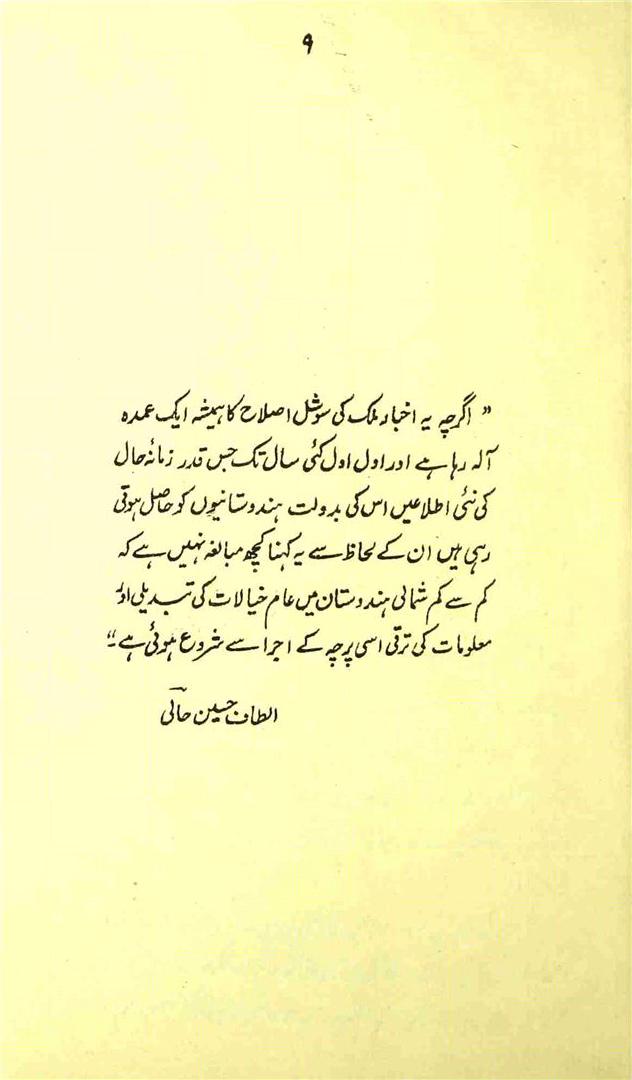 ۹
” اگرچہ یہ اخبار ملک کی سوشل اصلاح کا ہمیشہ ایک عمدہ
آلہ رہا ہے اور اول اول کئی سال تک جس قدر زمانۂ حال
کی نئی اطلاعیں اس کی بدولت ہندوستانیوں کو حاصل ہوتی
رہی ہیں ان کے لحاظ سے یہ کہنا کچھ مبالغہ نہیں ہے کہ
کم سے کم شمالی ہندوستان میں عام خیالات کی تبدیلی اور
معلومات کی ترقی اسی پرچہ کے اجرا سے شروع ہوئی ہے۔“
الطاف حسین حالی